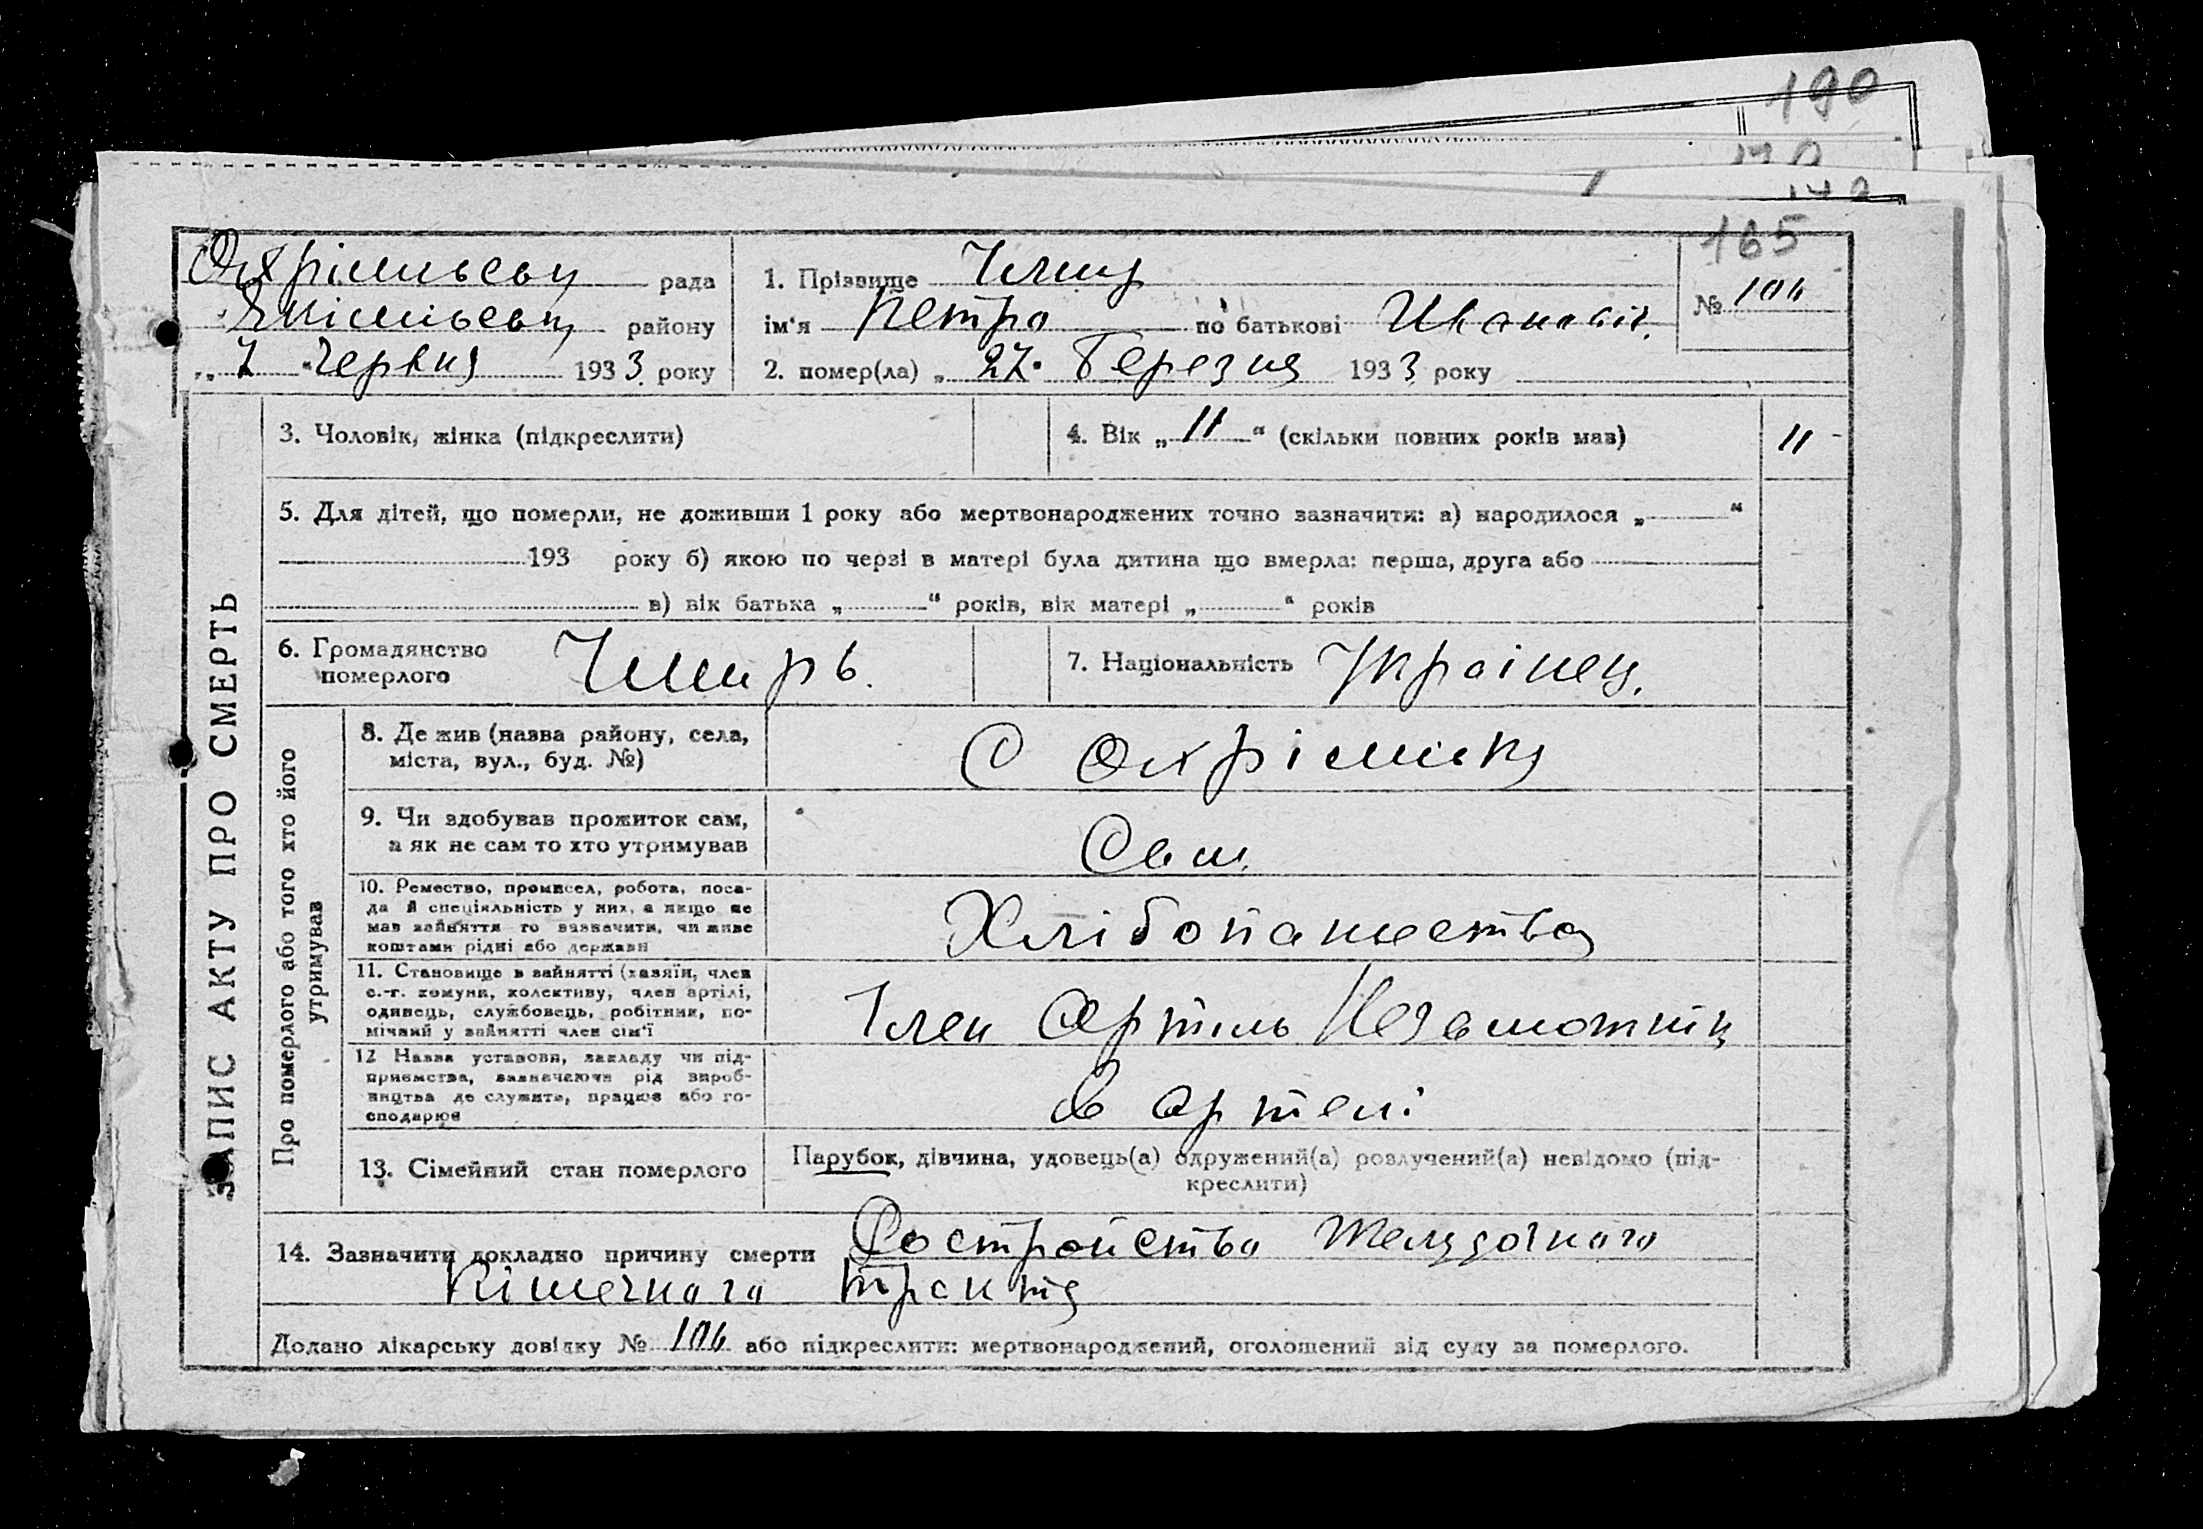 190
165
Охрімську рада
району
"7" Червня 1933 року
1. Прізвище
ім'я Петро по батькові Иванович.
№ 106
2. помер(ла) „ 27. Березня 1933 року
3. Чоловік, жінка (підкреслити)
4. Вік „ 11 “ (скільки повних років мав)
11 -
5. Для дітей, що померли, не доживши 1 року або мертвонароджених точно зазначити: а) народилося „ “
193 року б) якою по черзі в матері була дитина що вмерла: перша, друга або
в) вік батька „ “ років, вік матері „ “ років
6. Громадянство
померлого
7. Національність Українец.
ЗАПИС АКТУ ПРО СМЕРТЬ
Про померлого або того хто його
утримував
8. Де жив (назва району, села,
міста, вул., буд. №)
С
9. Чи здобував прожиток сам,
а як не сам то хто утримував
Сам
10. Ремество, промисел, робота, поса-
да й спеціяльність у них, а якщо не
мав зайняття то зазначити, чи живе
коштами рідні або держави
Хлібопашества
11. Становище в зайнятті (хазяїн, член
с.-г. комуни, колективу, член артілі,
одинець, службовець, робітник, по-
мічний у зайнятті член сім'ї
Член Артиль Незаможник
12 Назва установи, закладу чи під-
приємства, зазначаючи рід вироб-
ництва де служить, працює або го-
сподарює
в артелі
13. Сімейний стан померлого
Парубок, дівчина, удовець(а) одружений(а) розлучений(а) невідомо (під-
креслити)
14. Зазначити докладно причину смерти Розстройство Желудочного
Кішечного тракта
Додано лікарську довідку № 106 або підкреслити: мертвонароджений, оголошений від суду за померлого.